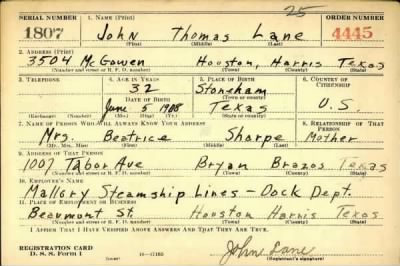 25
SERIAL NUMBER 1. NAME (Print) ORDER NUMBER
1807 John Thomas Lane 4445
(First) (Middle) (Last)
2. ADDRESS (Print)
3504 McGowen Houston, Harris Texas
(Number and street or R. F. D. number) (Town) (County) (State)
3. TELEPHONE 4. AGE IN YEARS 5. PLACE OF BIRTH 6. COUNTRY OF CITIZENSHIP
32 Stoneham
DATE OF BIRTH (Town or county)
June 5 1908 Texas U.S.
(Exchange) (Number) (Mo.) (Day) (Yr.) (State or country)
7. NAME OF PERSON WHO WILL ALWAYS KNOW YOUR ADDRESS 8. RELATIONSHIP OF THAT PERSON
Mrs. Beatrice Sharpe Mother
(Mr., Mrs., Miss) (First) (Middle) (Last)
9. ADDRESS OF THAT PERSON
1007 Tabor Ave Bryan Brazos Texas
(Number and street or R. F. D. number) (Town) (County) (State)
10. EMPLOYER'S NAME
Mallory Steamship Lines – Dock Dept.
11. PLACE OF EMPLOYMENT OR BUSINESS
Beaumont St. Houston Harris Texas
(Number and street or R. F. D. number) (Town) (County) (State)
I AFFIRM THAT I HAVE VERIFIED ABOVE ANSWERS AND THAT THEY ARE TRUE.
REGISTRATION CARD
D. S. S. Form 1 John Lane
(Registrant's signature)